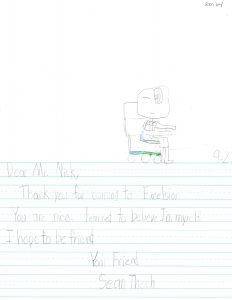 Dear Mr. Nick,
Thank you for coming to Excelsior.
You are nice. I learned to believe in myself.
I hope to be friend
Your Friend
Sean